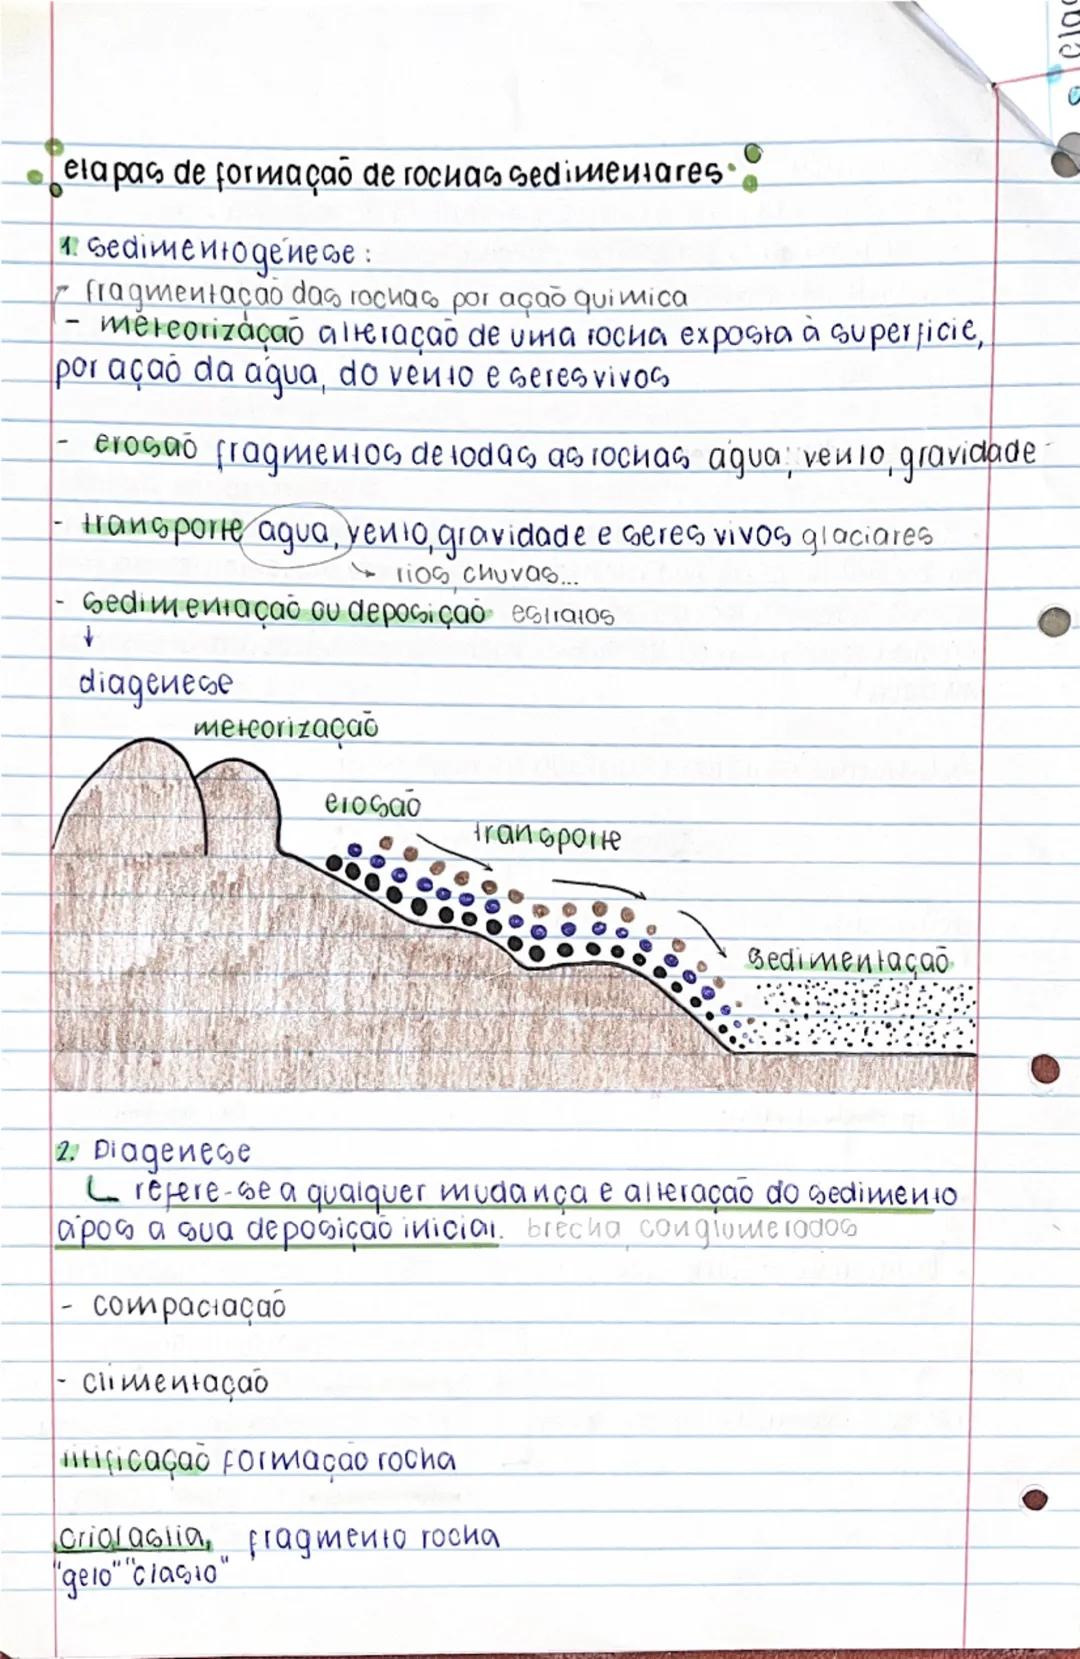 cla
etapas de formação de rochas sedimentares
1. sedimentogénese:
fragmentação das rochas por ação quimica
- meteorização alteração de uma rocha exposta à superficie,
por ação da água, do vento e seres vivos
- erosão fragmentos de todas as rochas água, vento, gravidade
- transporte agua, vento, gravidade e seres vivos glaciares
→ rios, chuvas...
- sedimentação ou deposição estratos
↓
diagenese
meteorização
erosão
transporte
sedimentação
2. Diagenese
refere-se a qualquer mudança e alteração do sedimento
após a sua deposição inicial. brecha, conglomerados
- compactação
- ciimentação
litificação formação rocha
criolastia, fragmento rocha
"gelo" "clasto"